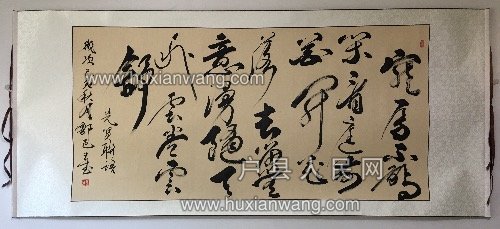 www.huxianwang.com
户县人民网
www.huxianwang.com
宠辱不惊
闲看庭前
花开花
落去留無
意漫随天
外雲卷雲
舒
先贤联语